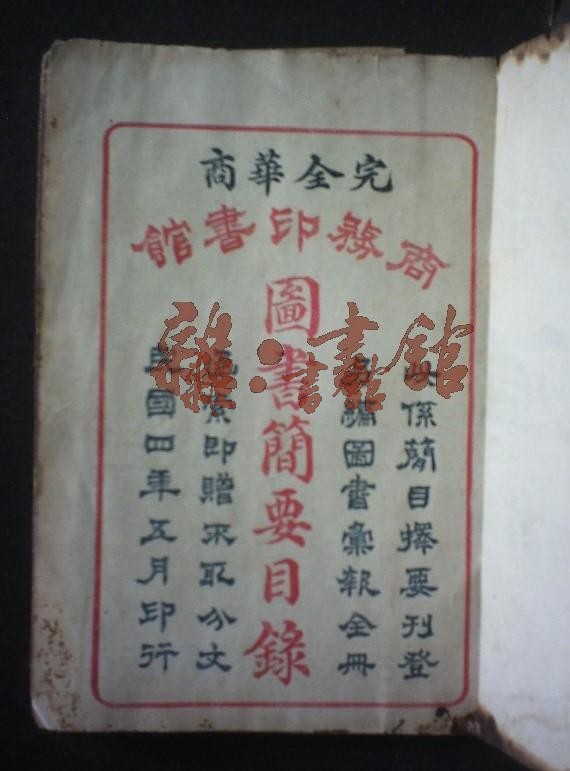 完全華商
商務印書館
係簡目擇要刊登
編圖書彙報全冊
圖書簡要目錄
索即贈不取分文
民國四年五月印行
雜·書館